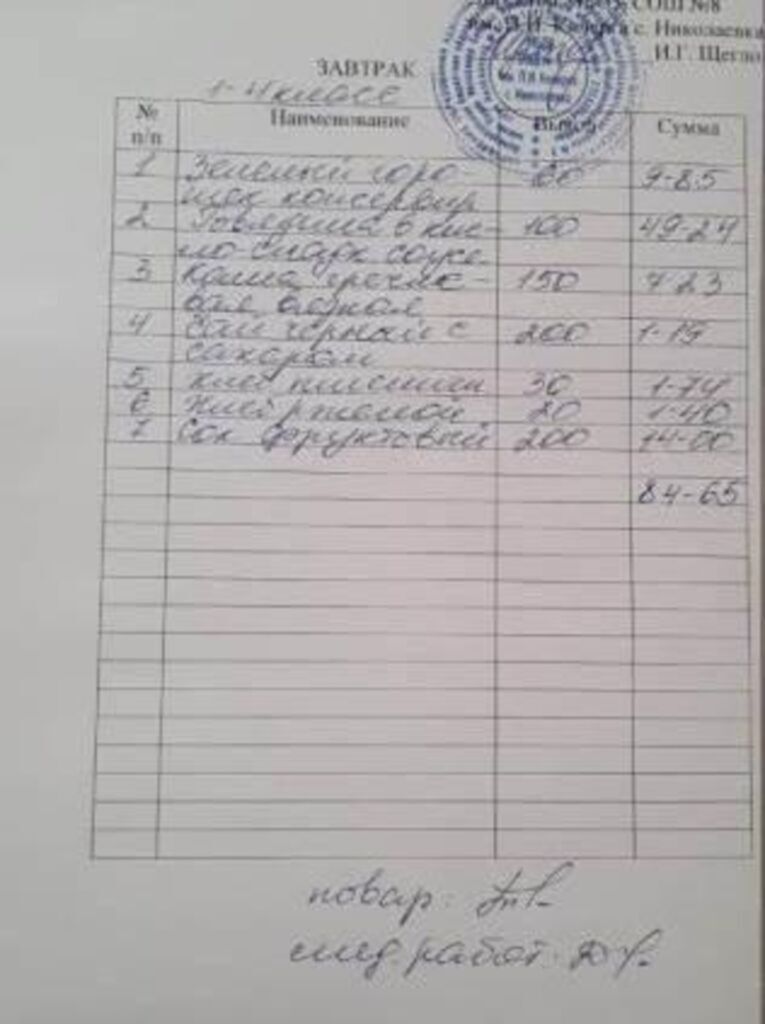 СОШ №8
с. Николаевка
И.Г. Щегло
ЗАВТРАК
1-4 класс
№ п/п Наименование Выход Сумма
1 Зеленый горо- 60 9-85
шек консервир
2 Говядина в кис- 100 49-24
ло-сладк соусе
3 Каша гречне- 150 7-23
вая
4 Чай черный с 200 1-19
сахаром
5 Хлеб пшеничн 30 1-74
6 Хлеб ржаной 20 1-40
7 Сок фруктовый 200 14-00
84-65
повар:
мед. работ.